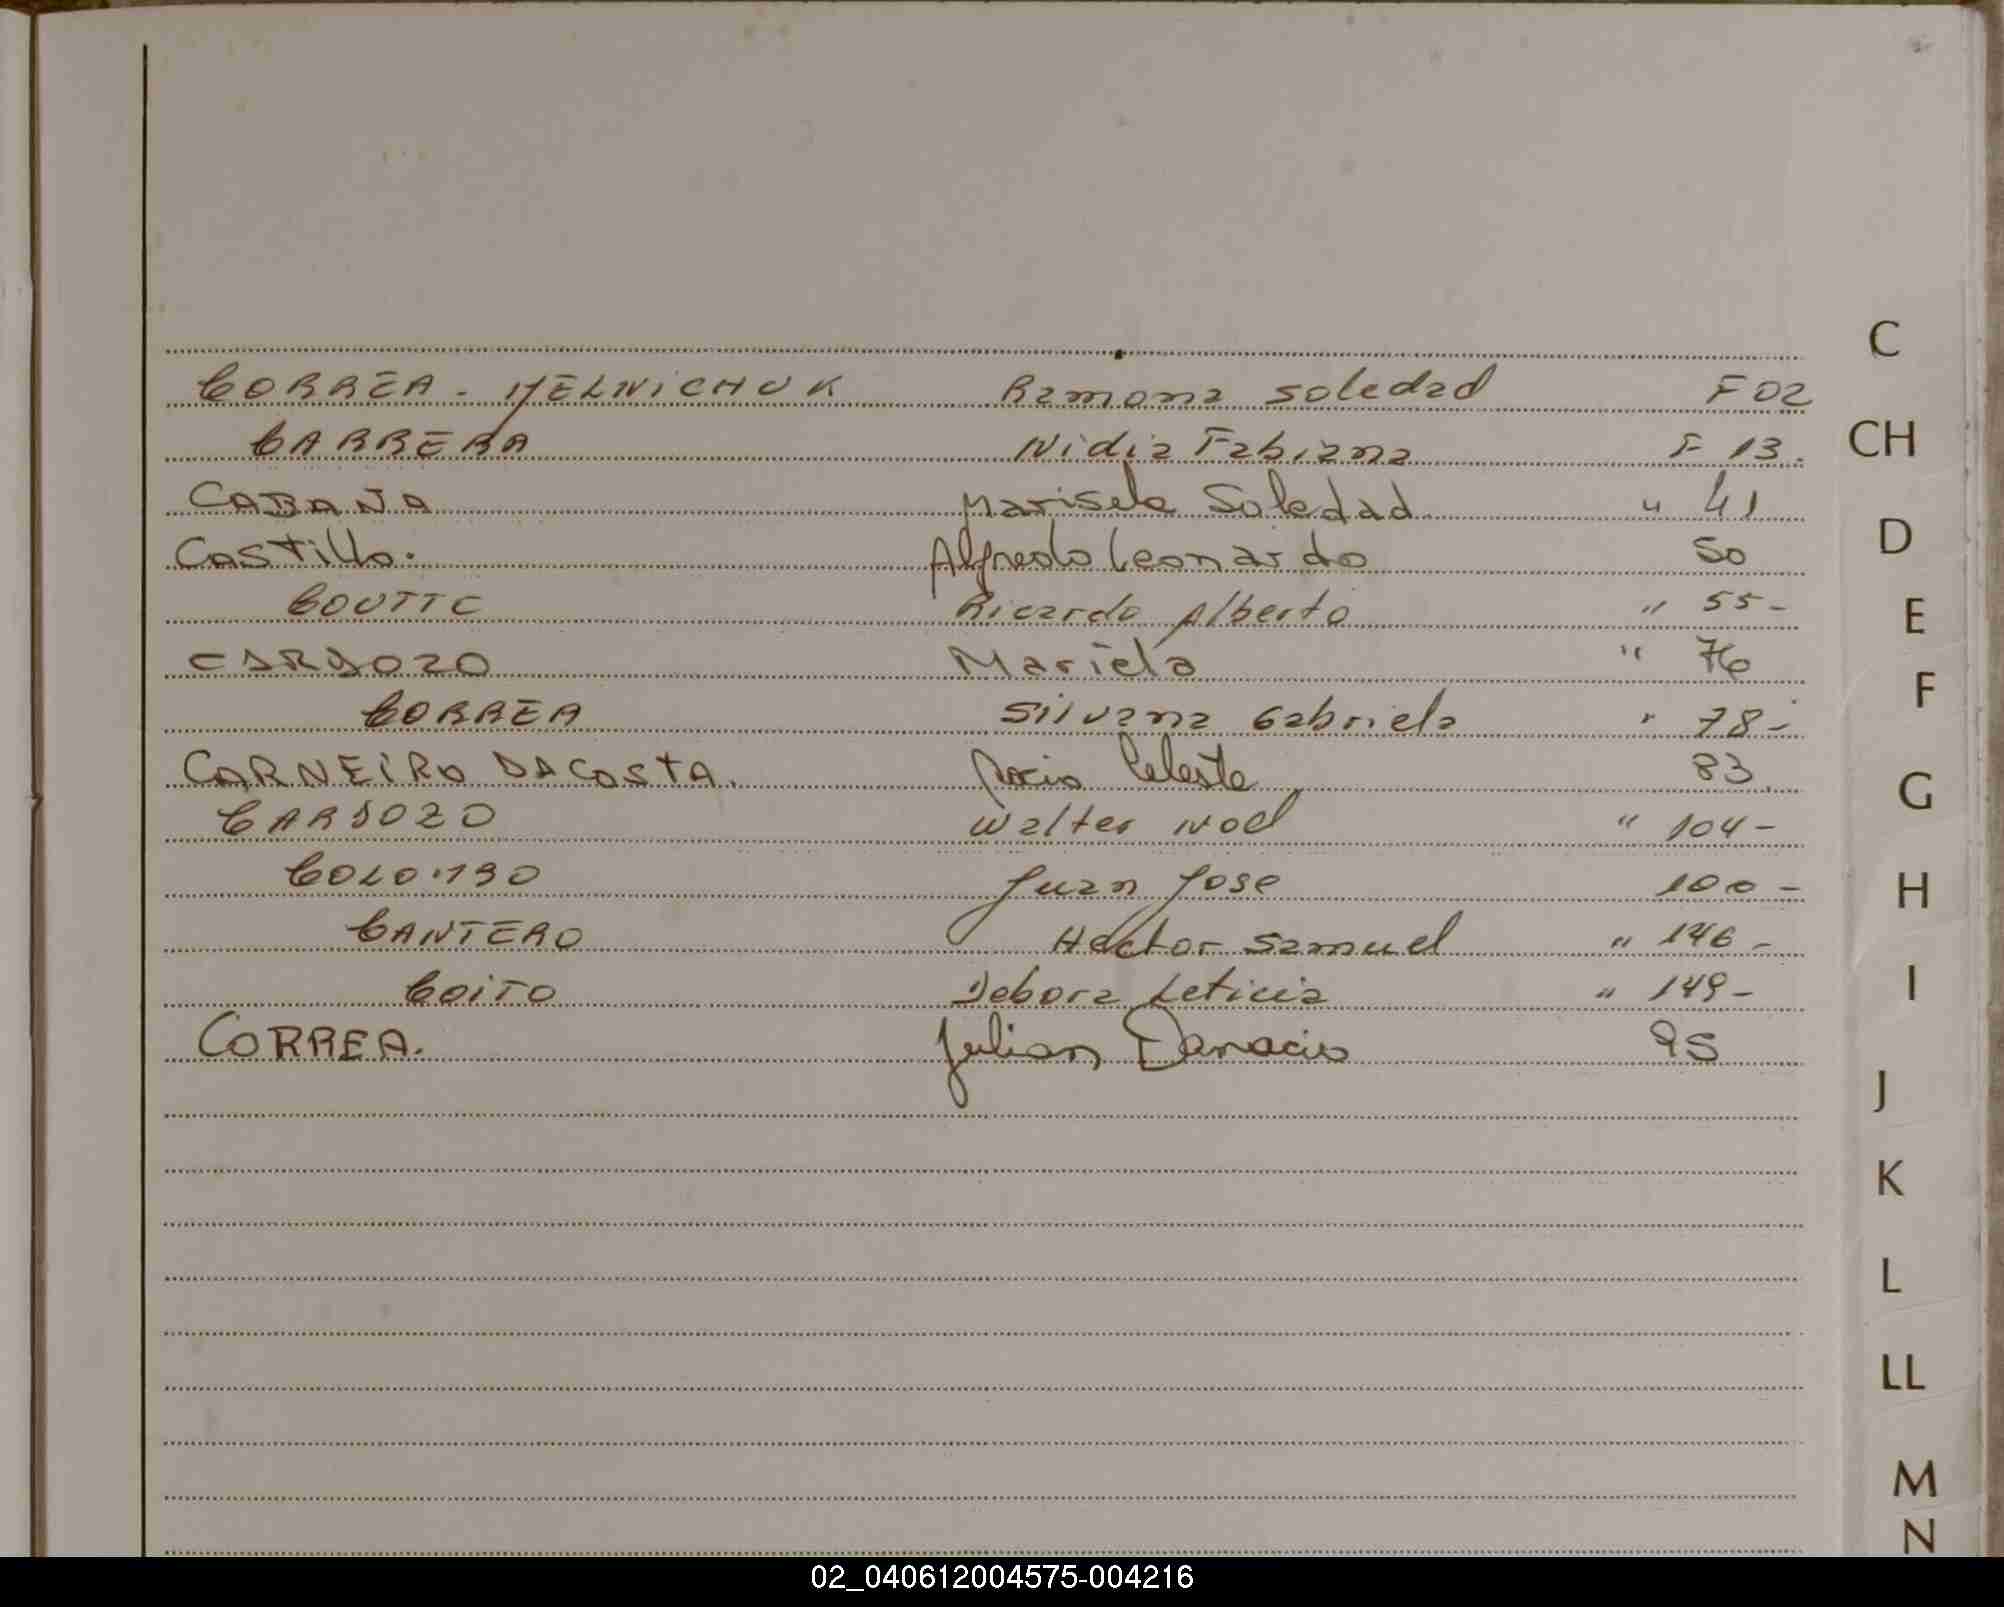 CORREA - MELNICHUK Ramona Soledad F 02
CARRERA Nidia Fabiana F 13.
CABANA Marisela Soledad " 41
Castillo. Alfredo Leonardo 50
Ricardo Alberto " 55-
CARDOZO Mariela " 76
CORREA Silvana Gabriela " 78-
CARNEIRO DACOSTA. Rocio Celeste 83
CARDOZO Walter Noel " 104-
Juan Jose 100-
CANTERO Hector Samuel " 146-
COITO Debora Leticia " 149-
CORREA. Julian 95
C
CH
D
E
F
G
H
I
J
K
L
LL
M
N
02_040612004575-004216